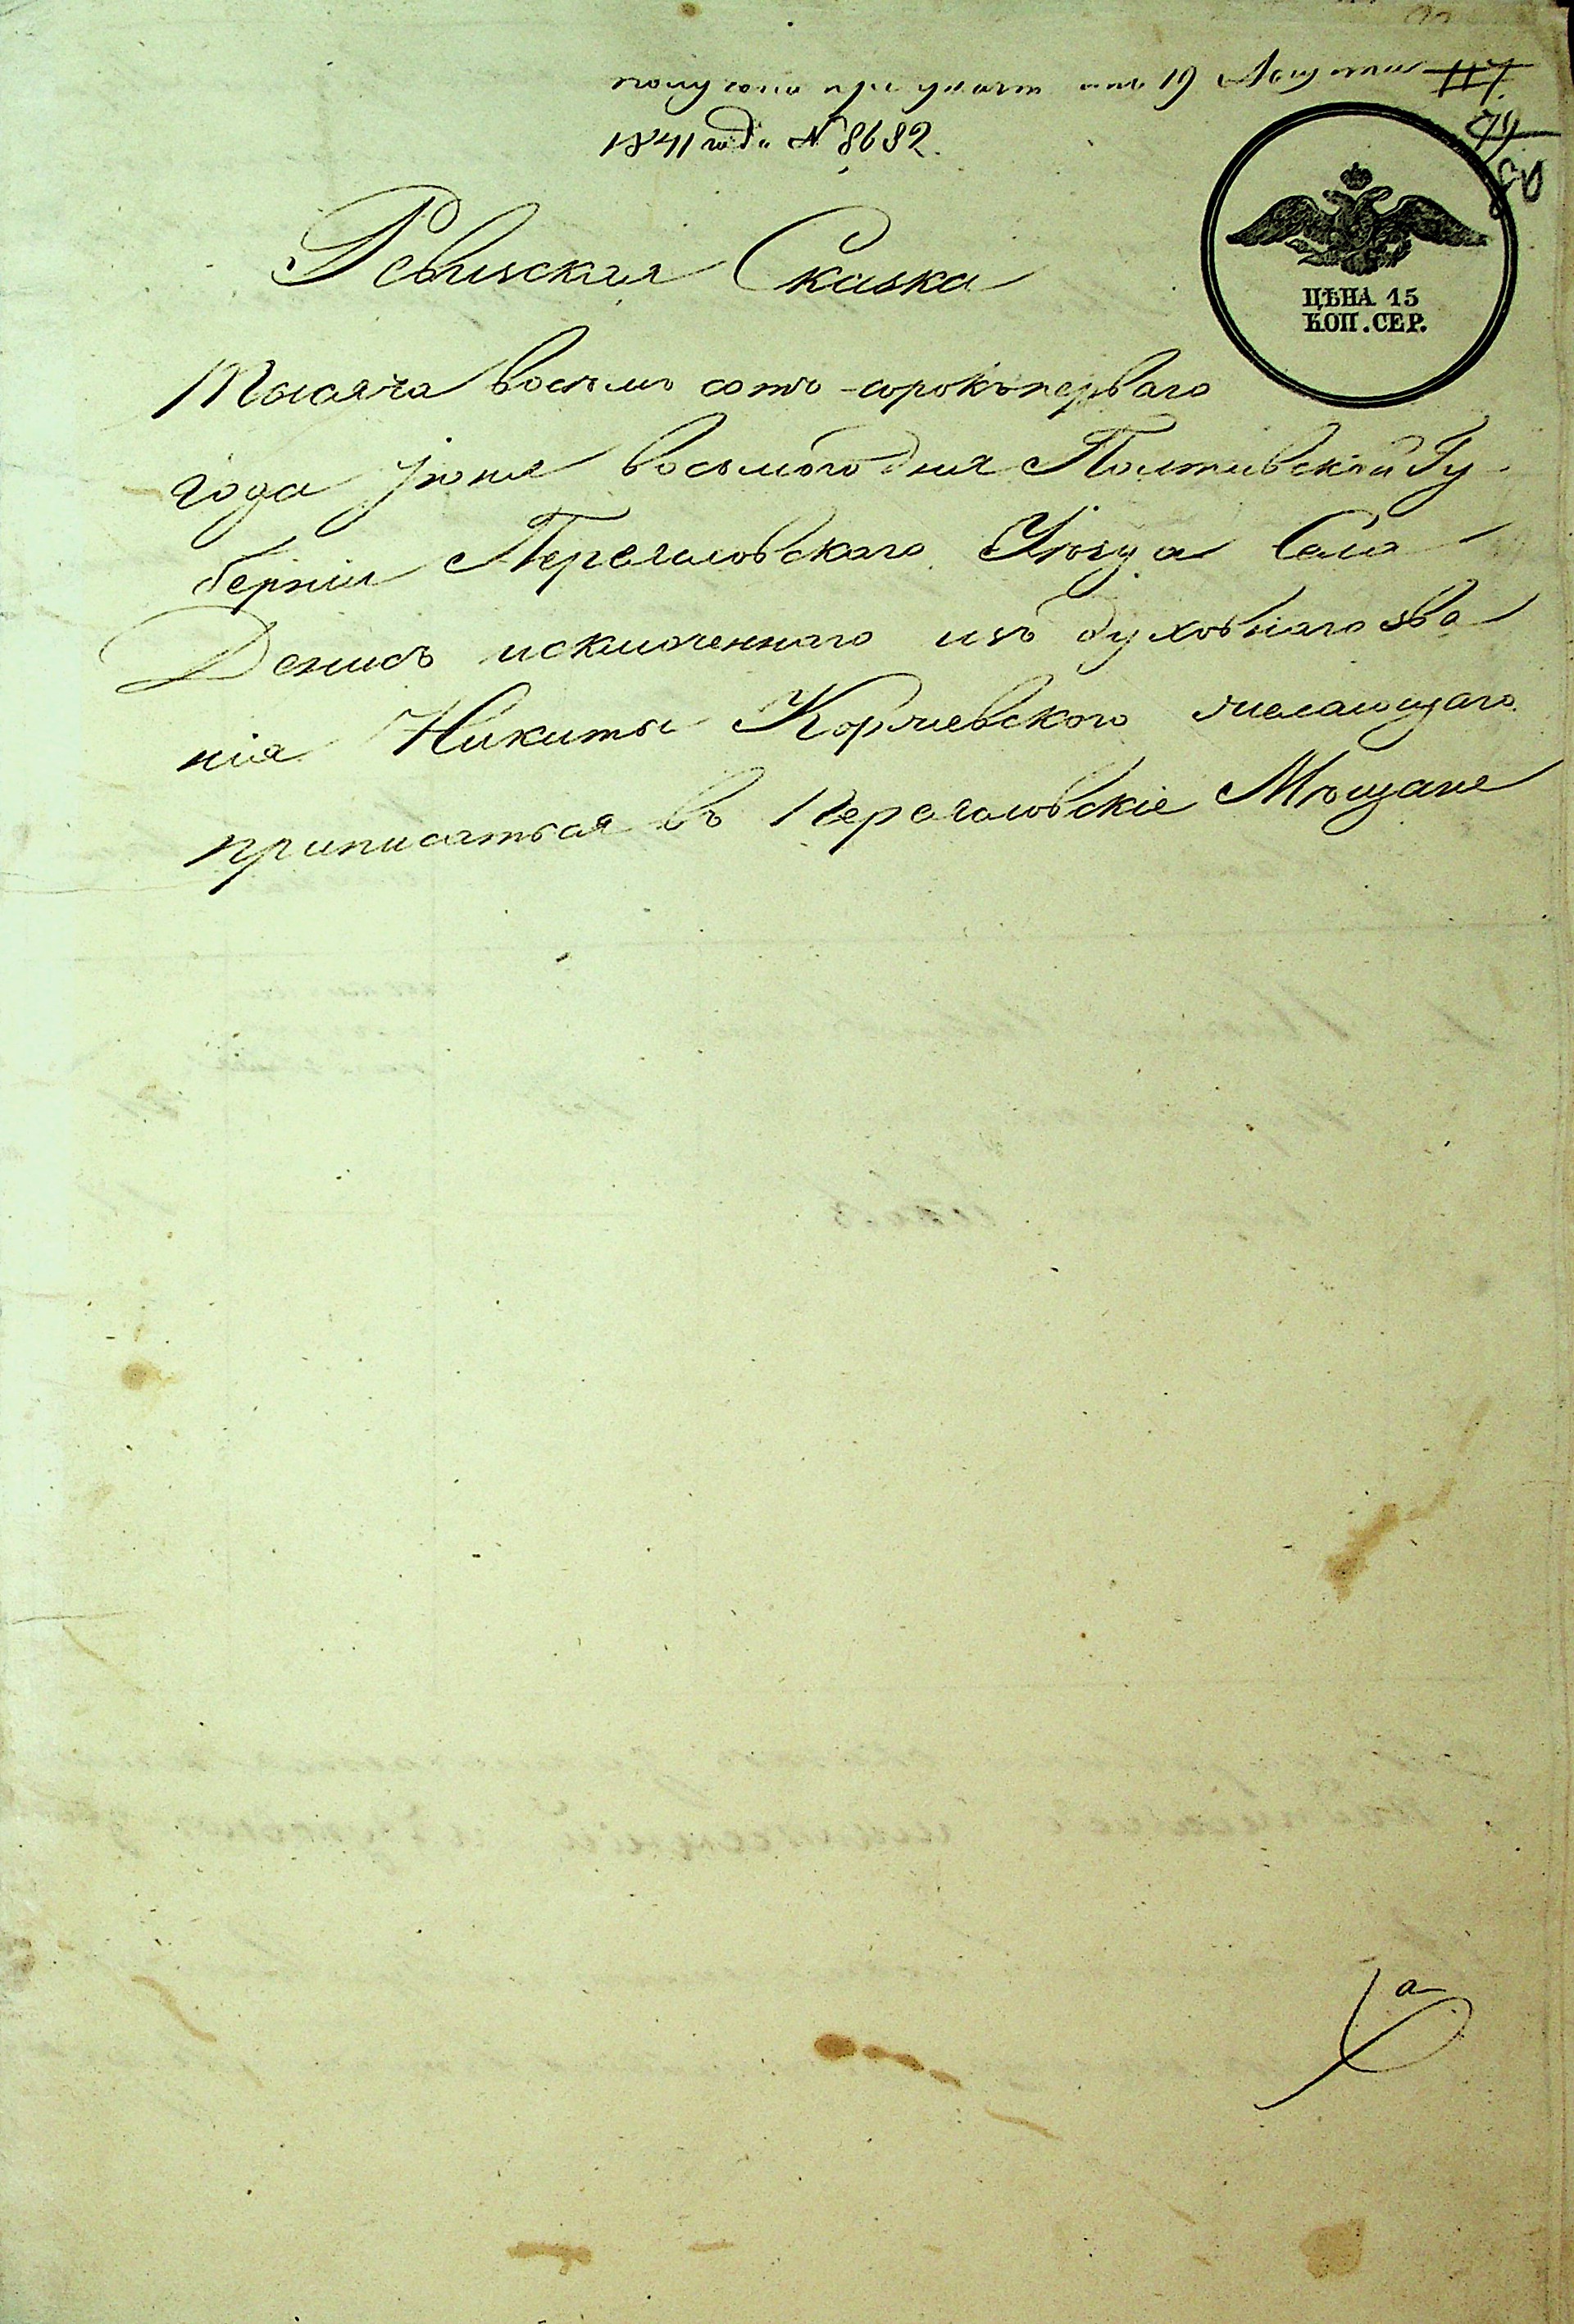 получена при указе от 19 Августа 117
1841 года № 8682.
79
80
ЦѢНА 15
КОП. СЕР.
Ревизская Сказка
Тысяча восемь сотъ сорокъ перваго
года Іюня восьмого дня Полтавской Гу-
берніи Переяславскаго Уѣзда Села
Денисъ исключеннаго изъ духовнаго зва
нія Никиты Корчевского желающаго
приписаться въ Переяславскіе Мѣщане